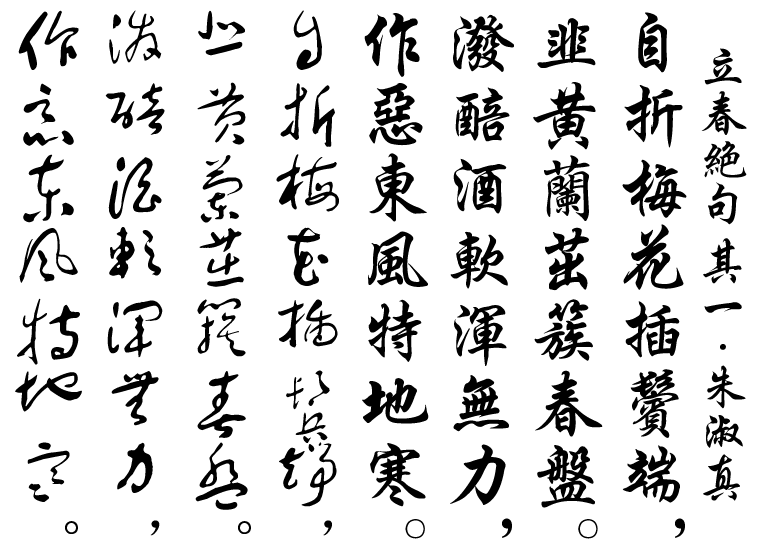 立春絕句 其一·朱淑真
自折梅花插鬢端，
韭黃蘭茁簇春盤。
潑醅酒軟渾無力，
作惡東風特地寒。
自折梅花插鬢端，
韭黃蘭茁簇春盤。
潑醅酒軟渾無力，
作惡東風特地寒。